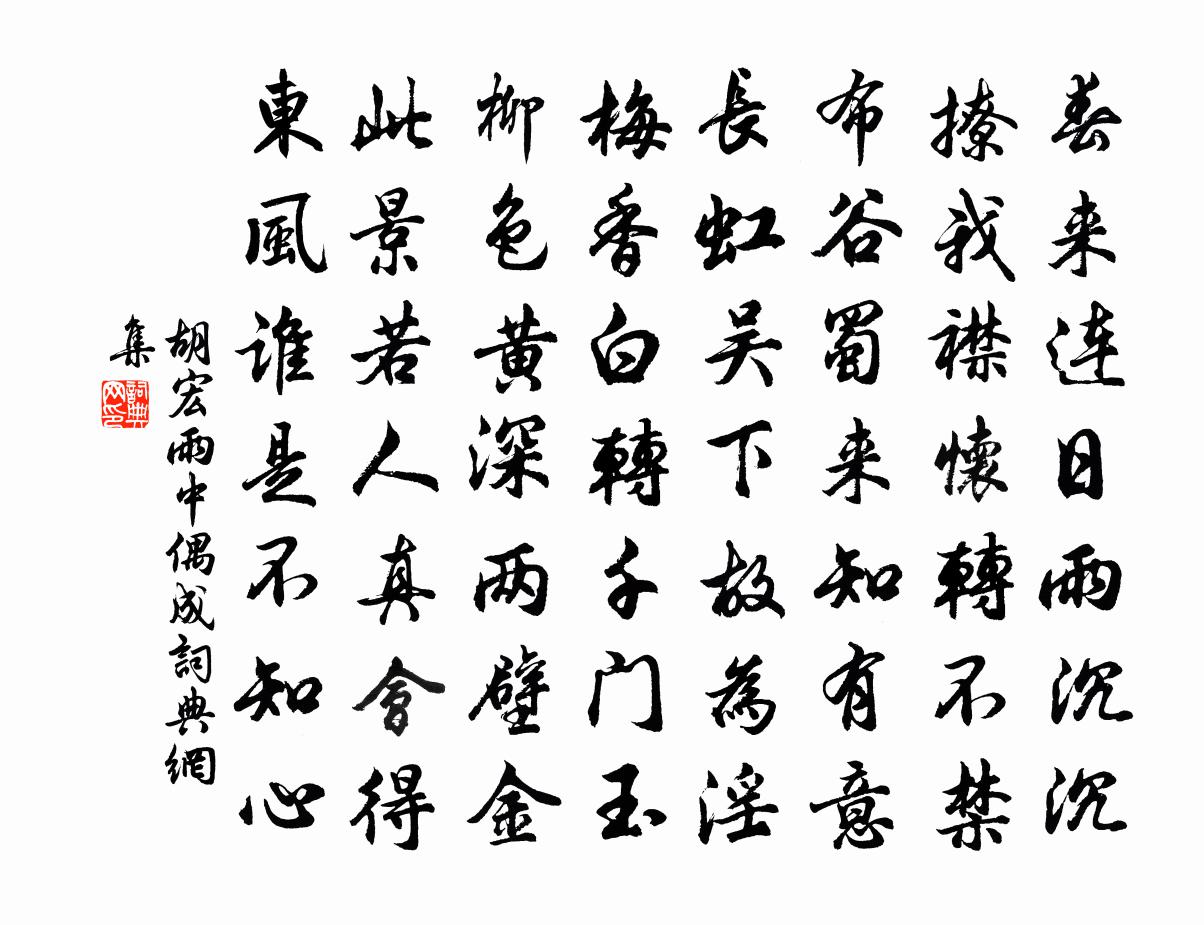 春来連日雨沉沉
撩我襟懷轉不禁
布谷蜀来知有意
長虹吴下故為淫
梅香白轉千门玉
柳色黄深兩壁金
此景若人真會得
東風誰是不知心
胡宏雨中偶成詞典網
集
詞典
网印